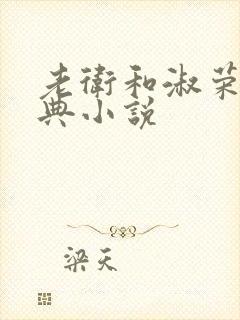 老衛和淑荣
典小説
梁天